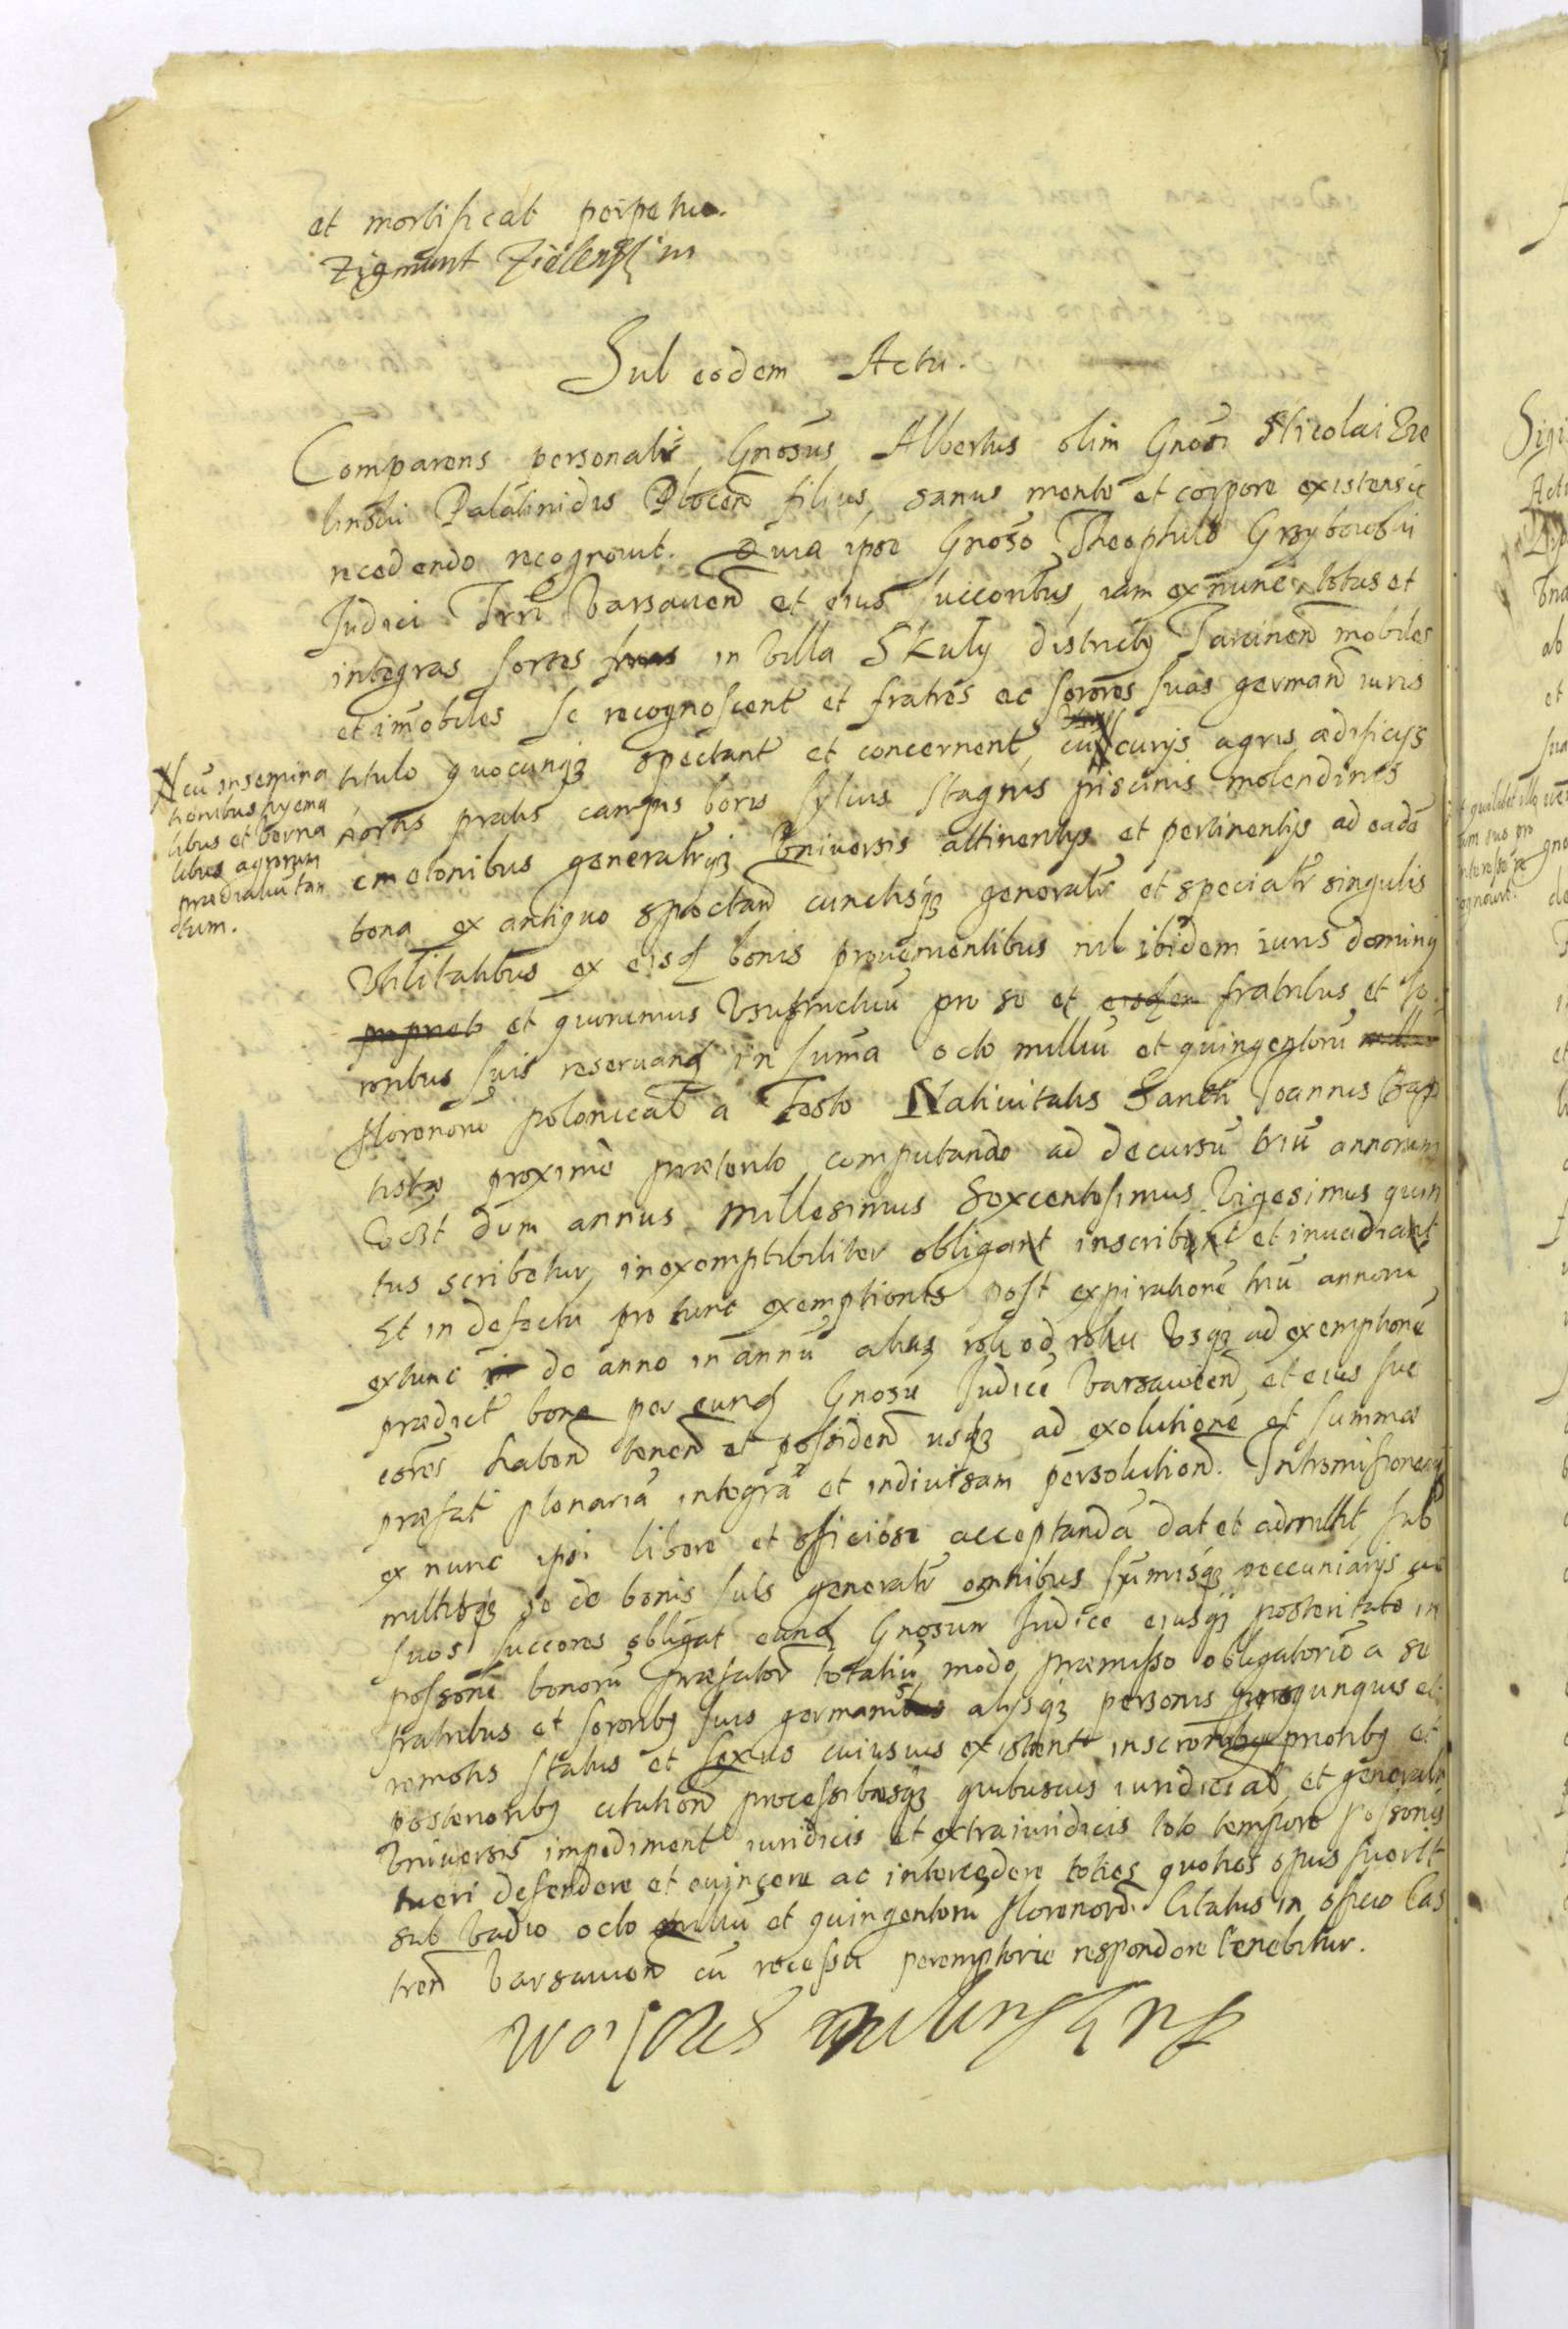 et mortificat perpetuo.
Zigmunt Zielenski m
Sub eodem Actu.
Comparens personalr Gnosus Albertus olim Gnosi Nicolai Zie
linski Palatinidis Plocen filius, sanus mente et corpore existens ac
recedendo recognovit. Quia ipse Gnoso Theophilo Grzybowski
Judici Trri Varsavien et eius succoribus, iam ex nunc, totas et
integras sortes suas in Villa Skuly districtus Tarcinen mobiles
et imobiles se recognoscent et fratres ac sorores suas german iuris
titulo quocunqz spectant et concernent, cu curijs agris ædificijs
hortis pratis campis boris sylvis stagnis piscinis molendinis
cmetonibus generalrqz Universis attinentijs et pertinentijs ad eade
bona ex antiquo spectan cunctisqz generalr et specialr singulis
Utilitatibus ex eisd bonis provenientibus nil ibidem iuris dominij
propriet et quorumvis Usufructuu pro se et eisdem fratribus et so
roribus suis reservand in suma octo milliu et quingentoru
florenoru polonical a Festo Nativitatis Sancti Joannis Bap
tistæ proxime præterito computando ad decursu triu annorum
hoc est dum annus Millesimus Sexcentesimus Vigesimus quin
tus scribetur, inexemptibiliter obligat inscribit et invadiat
Et in defectu pro tunc exemptionis post expiratione triu annoru
extunc de anno in annu alias rok od roku Usqz ad exemptione
prædict bona per eund Gnosu Judice Varsavien, et eius suc
cores haben tenen et possiden usqz ad exolutione et summæ
præfat plenaria integra et indivisam persolution. Intromissionemqz
ex nunc ipsi libere et officiose acceptanda dat et admittit sub
mittitqz se de bonis suis generalr omnibus sumisqz pecuniarijs ac
suos succores obligat eund Gnosum Judice eiusqz posteritate in
possone bonoru præfator totaliu modo præmisso obligatorio a se
fratribus et sororibus suis germanis alijsqz personis quibuscunqz
remotis status et sexus cuiusvis existent inscronibus prioribus et
posterioribus citation processibusqz quibusvis iuridicial et generalr
Universis impediment iuridicis et extraiuridicis toto tempore possonis
tueri defendere et evincere ac intercedere toties quoties opus fuerit
sub vadio octo milliu et quingentoru florenoru. Citatus in officio Cas
tren Varsavien cu recessu peremptorie respondere tenebitur.
Woiciech
cu insemina
tionibus hyema
libus et verna
libus agrorum
prædialiu tan
tum.